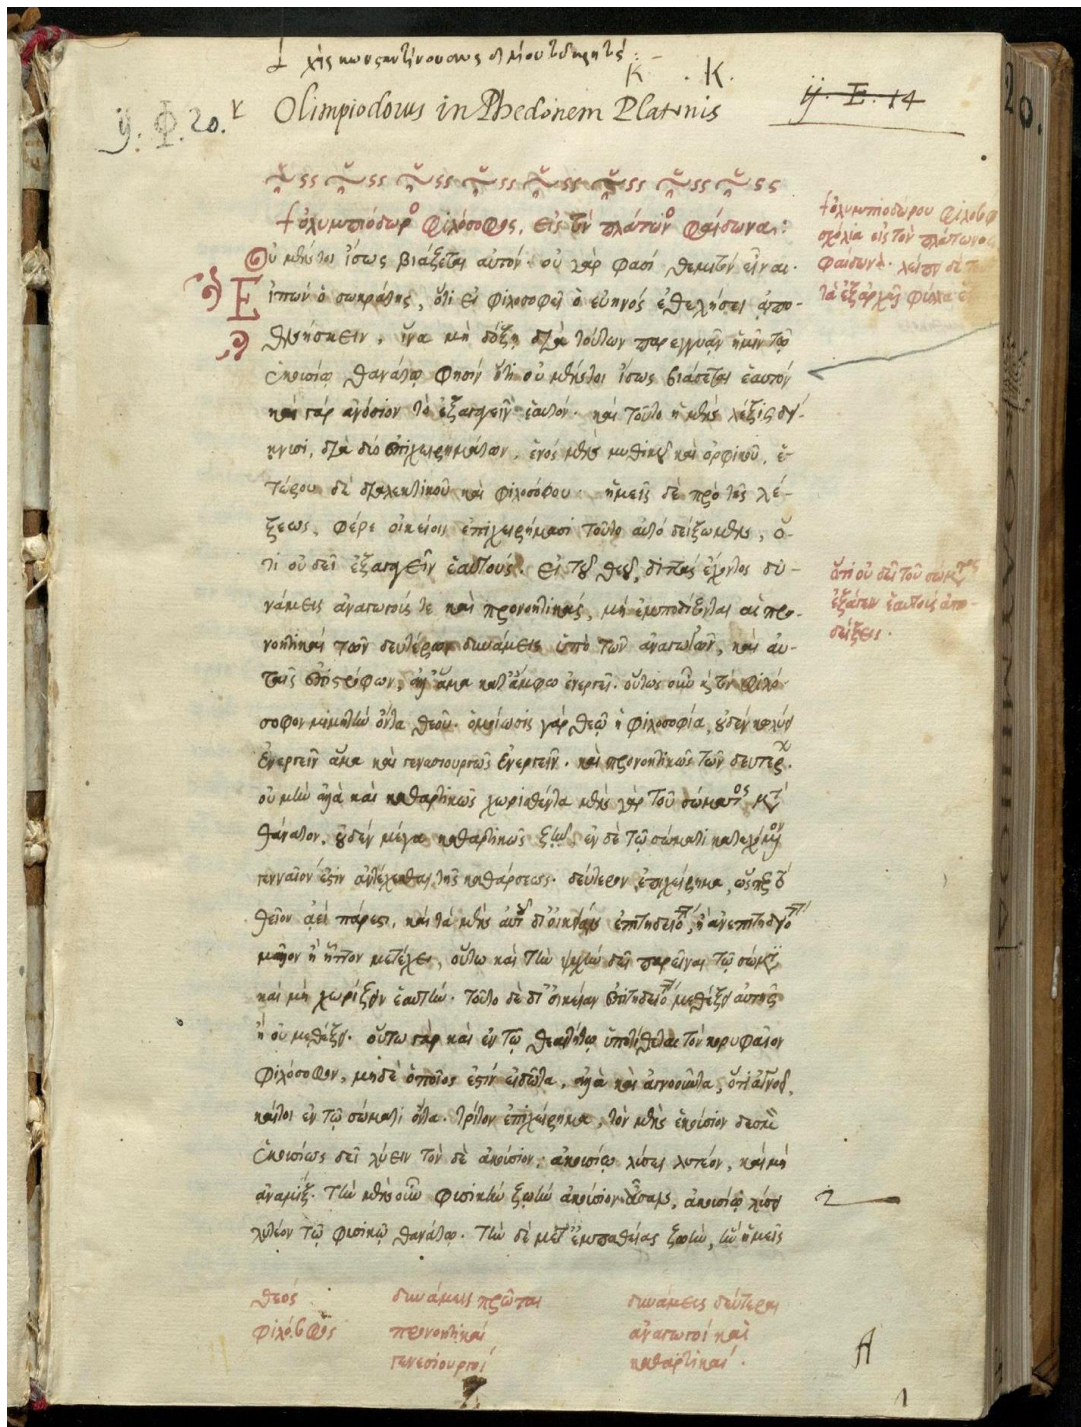 κ . κ.
ij. Φ. 20. Olimpiodorus in Phedonem Platonis
ij. E. 14
20.
ὀλυμπιόδωρος φιλόσοφος, εἰς τὸν πλάτωνος φαίδωνα:
ὀλυμπιοδώρου φιλοσόφ
σχόλια εἰς τὸν πλάτωνος
φαίδωνα. λείπει δὲ
τὰ ἐξ ἀρχῆς φύλλα
Οὐ μέντοι ἴσως βιάζεται αὐτόν· οὐ γάρ φασι θεμιτὸν εἶναι.
Εἰπὼν ὁ σωκράτης, ὅτι εἰ φιλοσοφεῖ ὁ εὔηνός ἐθελήσει ἀπο-
θνήσκειν, ἵνα μὴ δόξῃ διὰ τούτων παρεγγυᾶν ἡμῖν τῷ
ἑκουσίῳ θανάτῳ φησίν ὅτι οὐ μέντοι ἴσως βιάσεται ἑαυτόν
καὶ γὰρ ἀνόσιον τὸ ἐξαγειν ἑαυτόν. καὶ τοῦτο ἡ μὲν λέξις δεί-
κνυσι, διὰ δύο ἐπιχειρημάτων, ἑνὸς μὲν μυθικοῦ καὶ ὀρφικοῦ, ἑ-
τέρου δὲ διαλεκτικοῦ καὶ φιλοσόφου· ἡμεῖς δὲ πρὸ τῆς λέ-
ξεως, φέρε οἰκείοις ἐπιχειρήμασι τοῦτο αὐτὸ δείξωμεν, ὅ-
τι οὐ δεῖ ἐξαγειν ἑαυτούς. εἰ τοῦ θεοῦ, διττὰς ἔχοντος δυ-
νάμεις ἀναγωγούς τε καὶ προνοητικάς, μὴ ἐμποδίζονται αἱ προ-
νοητικαὶ τῶν δευτέρων δυνάμεις ὑπὸ τῶν ἀναγωγῶν, καὶ ἑαυ-
ταῖς ἐπιστρέφων, ἀλλ' ἅμα κατ' ἄμφω ἐνεργεῖ. οὕτως οὖν καὶ τὸν φιλό-
σοφον μιμητὴν ὄντα θεοῦ. ὁμοίωσις γὰρ θεῷ ἡ φιλοσοφία, οὐδὲν κωλύει
ἐνεργεῖν ἅμα καὶ γενεσιουργῶς ἐνεργεῖν. καὶ προνοητικῶς τῶν δευτέρων.
οὐ μὴν ἀλλὰ καὶ καθαρτικῶς χωρισθέντα μὲν γὰρ τοῦ σώματος μετὰ
θάνατον, οὐδὲν μέγα καθαρτικῶς ζῆν. ἐν δὲ τῷ σώματι κατεχόμενον
γενναῖόν ἐστιν ἀντέχεσθαι τῆς καθάρσεως. δεύτερον ἐπιχείρημα, ὥσπερ τὸ
θεῖον ἀεὶ πάρεστι, καὶ τὰ μὲν αὐτοῦ δι' οἰκείαν ἐπιτηδειότητα, ἢ ἀνεπιτηδειότητα
μᾶλλον ἢ ἧττον μετέχει, οὕτω καὶ τὴν ψυχὴν δεῖ παρεῖναι τῷ σώματι
καὶ μὴ χωρίζειν ἑαυτήν. τοῦτο δὲ δι' οἰκείαν ἐπιτηδειότητα μεθέξει αὐτῆς
ἢ οὐ μεθέξει. οὕτω γὰρ καὶ ἐν τῷ θεαιτήτῳ ὑποτίθεται τὸν κορυφαῖον
φιλόσοφον, μηδὲ ὁποῖός ἐστιν εἰδότα, ἀλλὰ καὶ ἀγνοοῦντα, ὅτι ἀγνοεῖ,
καίτοι ἐν τῷ σώματι ὄντα. τρίτον ἐπιχείρημα, τὸν μὲν ἑκούσιον δεσμὸν
ἑκουσίως δεῖ λύειν τὸν δὲ ἀκούσιον, ἀκουσίῳ λύσει λυτέον, καὶ μὴ
ἀναμίξ. τὴν μὲν οὖν φυσικὴν ζωὴν ἀκούσιον οὖσαν, ἀκουσίῳ λύσει
λυτέον τῷ φυσικῷ θανάτῳ. τὴν δὲ μετ' ἐμπαθείας ζωὴν, ἣν ἡμεῖς
ὅτι οὐ δεῖ τοῦ σώματος
ἐξάγειν ἑαυτοὺς ἀπο-
δείξεις.
θεός δυνάμεις πρῶται δυνάμεις δεύτεραι
φιλόσοφος προνοητικαί ἀναγωγοί καὶ
γενεσιουργοί καθαρτικαί.
A
1